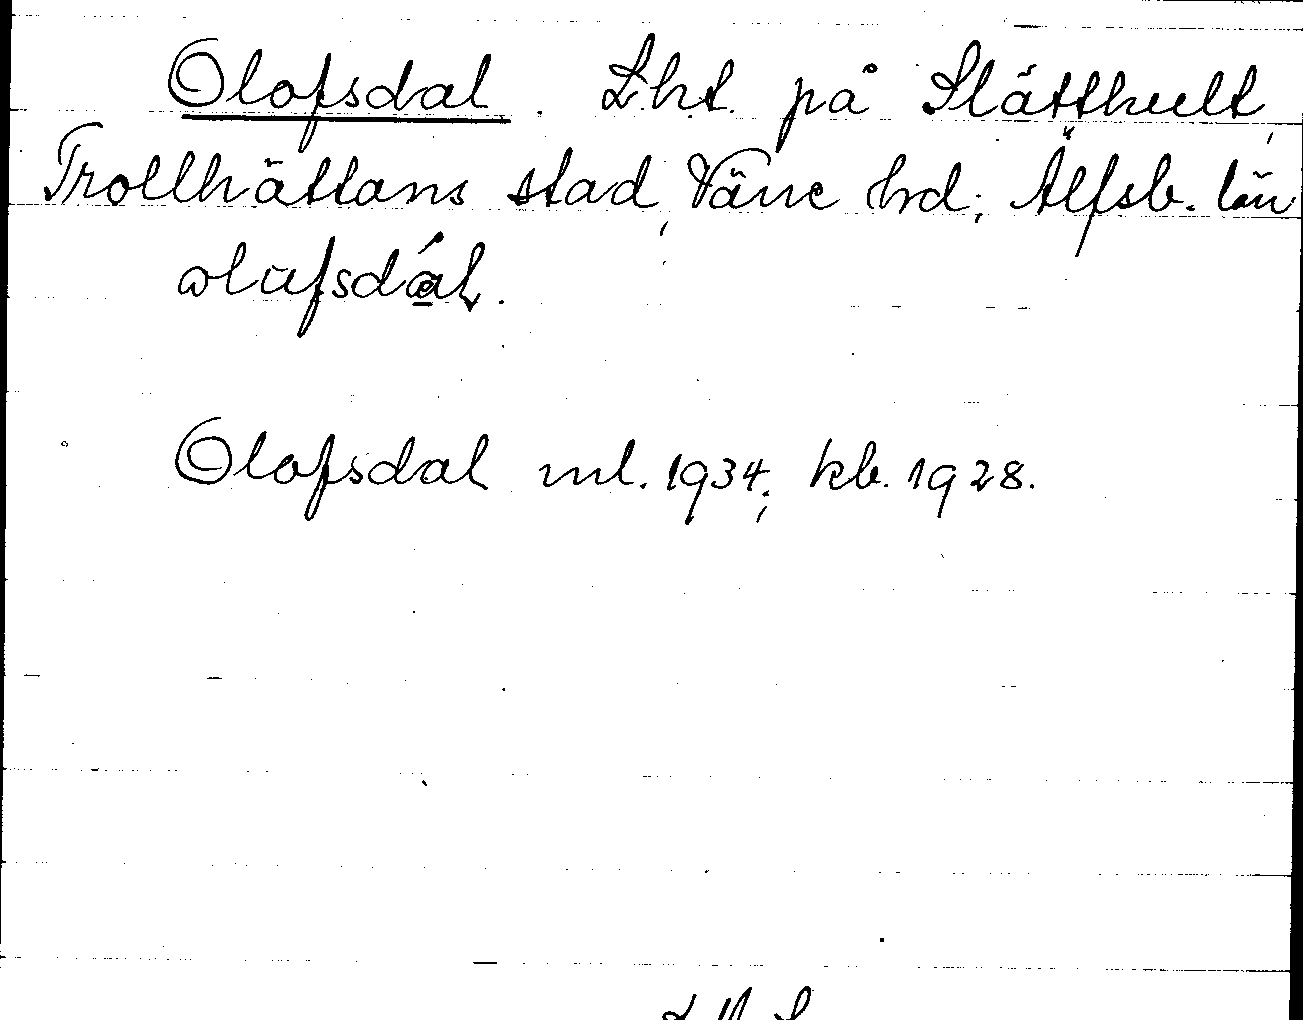 Olofsdal. Lht. på Slätthult,
Trollhättans stad, Väne hd; Älfsb. län
ɷlufsdál.
Olofsdal ml. 1934; kb. 1928.